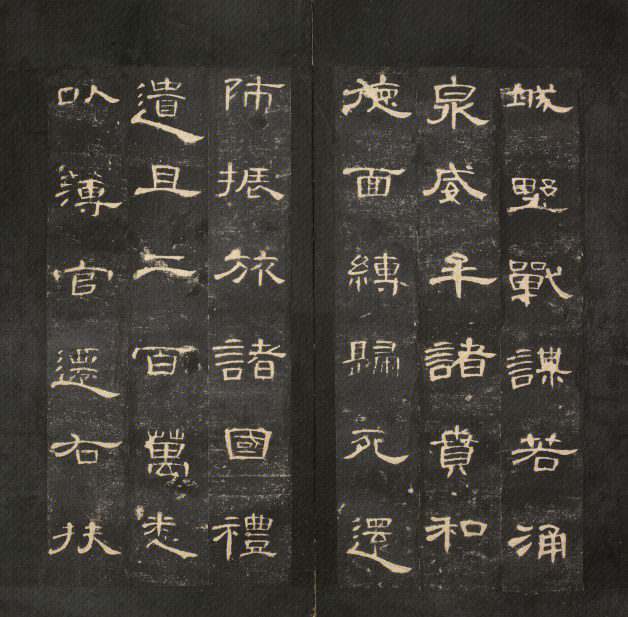 城野戰謀若涌
泉威牟諸賁和
德面縛歸死還
師振旅諸國禮
遺且二百萬悉
以簿官遷右扶